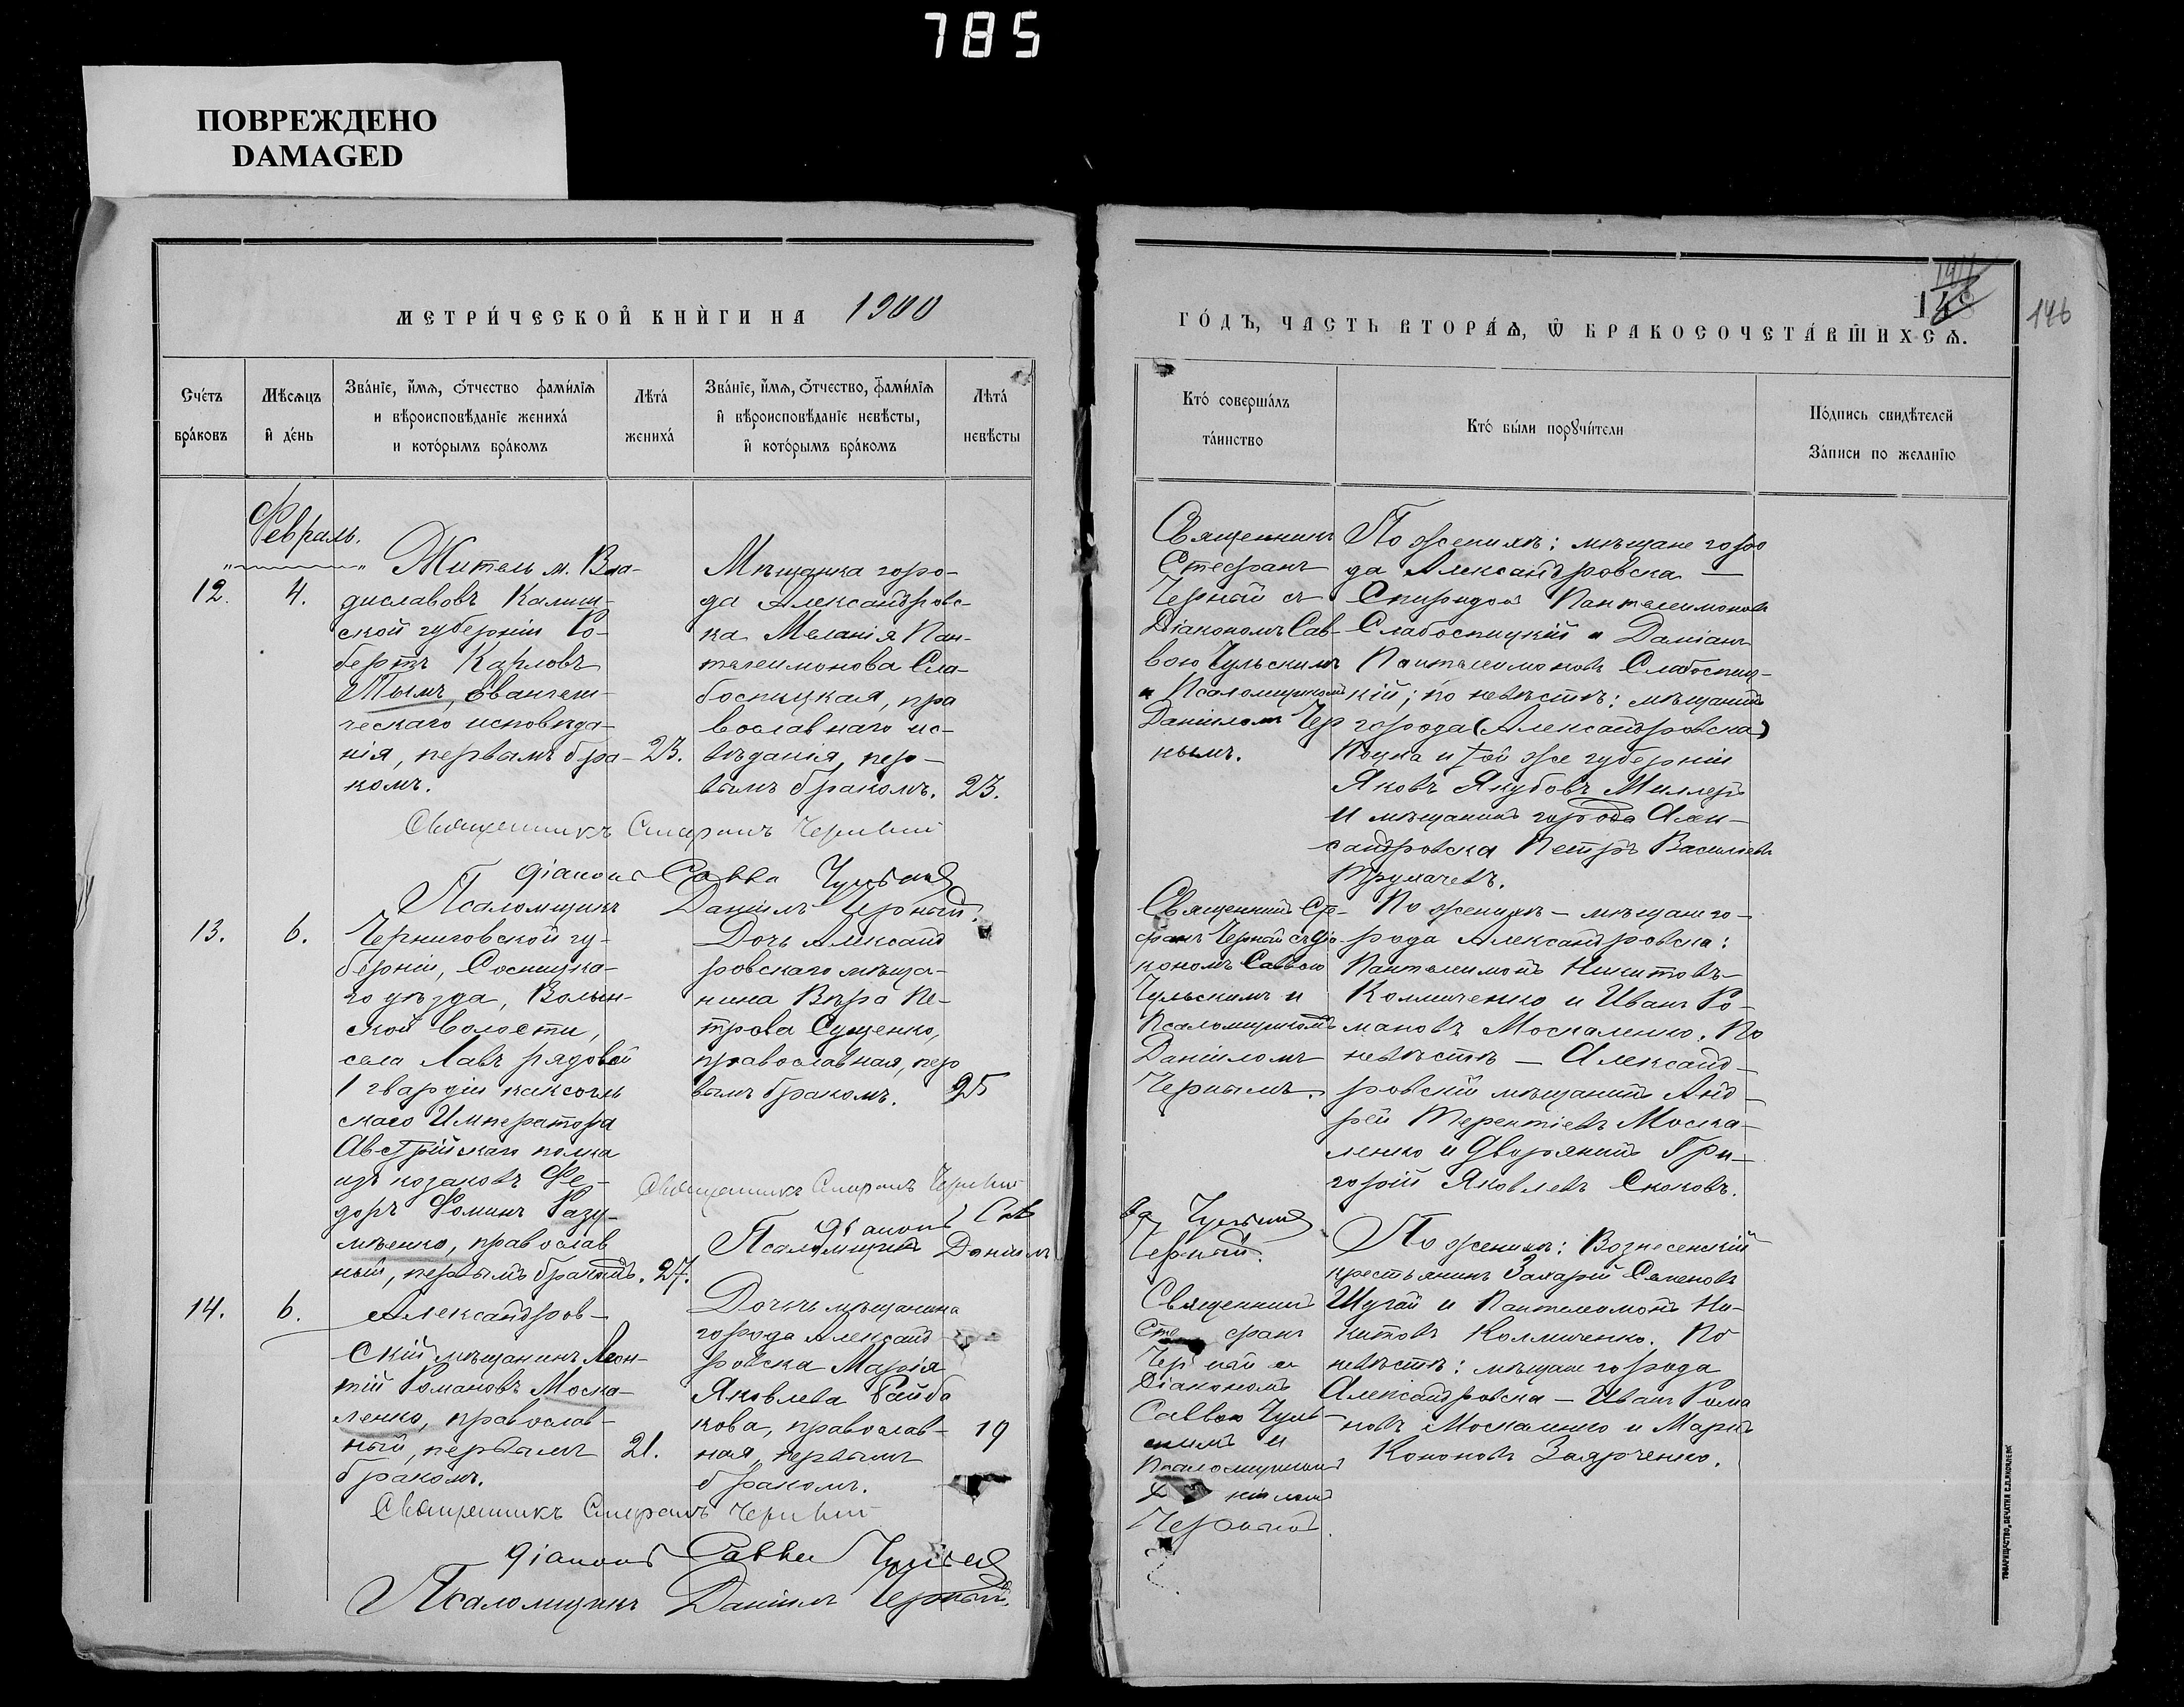 785
ПОВРЕЖДЕНО
DAMAGED
МЕТРИ́ЧЕСКОЙ КНИ́ГИ НА 1900
Сче́тъ бра́ковъ
Мѣсяцъ и҆ де́нь
Зва́нїе, и҆́мѧ, ѻ҆́тчество фами́лїѧ и вѣроисповѣ́данїе жениха́ и кото́рымъ бра́комъ
Лѣта́ жениха́
Зва́нїе, и҆́мѧ, ѻ҆́тчество, фами́лїѧ и҆ вѣроисповѣ́данїе невѣ́сты, и҆ кото́рымъ бра́комъ
Лѣта́ невѣ́сты
Февраль.
12.
4.
Житель м. Вла-
диславовъ Калиш-
ской губерніи Ро-
бертъ Карловъ
Тымъ, евангели-
ческаго исповѣда-
нія, первымъ бра-
комъ.
23.
Мѣщанка горо-
да Александровс-
ка Меланія Пан-
телеимонова Сла-
боспицкая, пра
вославнаго ис-
вѣданія, пер-
вымъ бракомъ.
23.
Священникъ Стефанъ Черный
Діаконъ Савва Чульскій
Псаломщикъ Даніилъ Черный.
13.
6.
Черниговской гу-
берніи, Сосницка-
го уѣзда, Волын-
ской волости,
села Лавъ рядовой
Императора
Австрійскаго полка
изъ козаковъ Фе-
доръ Ѳоминъ Разу-
мѣенко, православ
ный, первымъ бракомъ.
27.
Дочь Александ
ровскаго мѣща-
нина Вѣра Пе-
трова Сущенко,
православная, пер
вымъ бракомъ.
25
Священникъ Стефанъ Черный
Діаконъ Сав
Псаломщикъ Даніилъ
14.
6.
Александров-
скій мѣщанинъ Леон-
тій Романовъ Моска-
ленко, православ-
ный, первымъ
бракомъ.
21.
Дочь мѣщанина
города Александ
ровска Марія
Яковлева Райба
кова, православ-
ная, первымъ
бракомъ.
19
Священникъ Стефанъ Черный
Діаконъ Савва Чульскій
Псаломщикъ Даніилъ Черный.
146
ГО́ДЪ, ЧАСТЬ ВТОРА́Ѧ, Ѡ҆ БРАКОСОЧЕТА́ВШИХСѦ.
Кто́ соверша́лъ та́инство
Кто́ бы́ли порꙋчи́тели
По́дпись свидѣ́телей За́писи по жела́нїю
Священникъ
Стефанъ
Черный съ
Діакономъ Сав-
вою Чульскимъ
и Псаломщикомъ
Даніиломъ Чер
нымъ.
По женихѣ: мѣщане горо
да Александровска —
Спиридонъ Пантелеимоновъ
Слабоспицкій и Даміанъ
Пантелеимоновъ Слабоспиц-
кій; по невѣстѣ: мѣщанинъ
города (Александровска)
и той же губерніи
Яковъ Якубовъ Миллеръ
и мѣщанинъ города Алек-
сандровска Петръ Васильевъ
Трумачевъ.
Священникъ Сте-
фанъ Черный съ Діа
кономъ Саввою
Чульскимъ и
Псаломщикомъ
Даніиломъ
Чернымъ.
По женихѣ — мѣщане го-
рода Александровска:
Пантелеимонъ Никитовъ
Колмиченко и Иванъ Ро-
мановъ Москаленко. По
невѣстѣ — Александ-
ровскій мѣщанинъ Анд-
рей Терентіевъ Моска-
ленко и дворянинъ Гри-
горій Яковлевъ Скоковъ.
ва Чульскій
Черный.
Священникъ
Стефанъ
Черный съ
Діакономъ
Саввою Чуль-
скимъ и
Псаломщикомъ
Даніиломъ
Чернымъ.
По женихѣ: Вознесенскій
крестьянинъ Захарій Семеновъ
Шугай и Пантелеимонъ Ни-
китовъ Колмиченко. По
невѣстѣ: мѣщане города
Александровска — Иванъ Рома
новъ Москаленко и Маркъ
Кононовъ Заярченко.
ТОВАРИЩЕСТВО „ПЕЧАТНЯ С. П. ЯКОВЛЕВА“